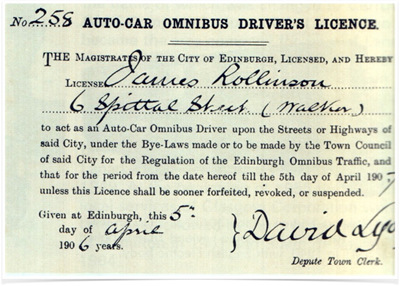 No. 258 AUTO-CAR OMNIBUS DRIVER'S LICENCE.
THE MAGISTRATES OF THE CITY OF EDINBURGH, LICENSED, AND HEREBY
LICENSE James Rollinson
6 Spittal Street (Walker)
to act as an Auto-Car Omnibus Driver upon the Streets or Highways of
said City, under the Bye-Laws made or to be made by the Town Council
of said City for the Regulation of the Edinburgh Omnibus Traffic, and
that for the period from the date hereof till the 5th day of April 1907
unless this Licence shall be sooner forfeited, revoked, or suspended.
Given at Edinburgh, this 5th
day of April
1906 years.
David
Depute Town Clerk.